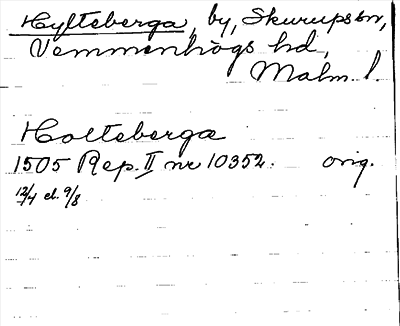 Hylteberga, by, Skurups sn,
Vemmenhögs hd,
Malm. l.
Holteberga
1505 Rep. II nr 10352. orig.
12/4 el. 9/8